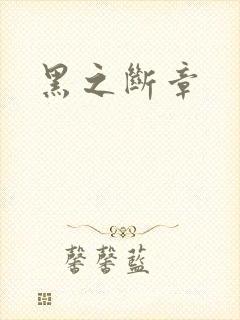 黑之斷章
馨馨藍